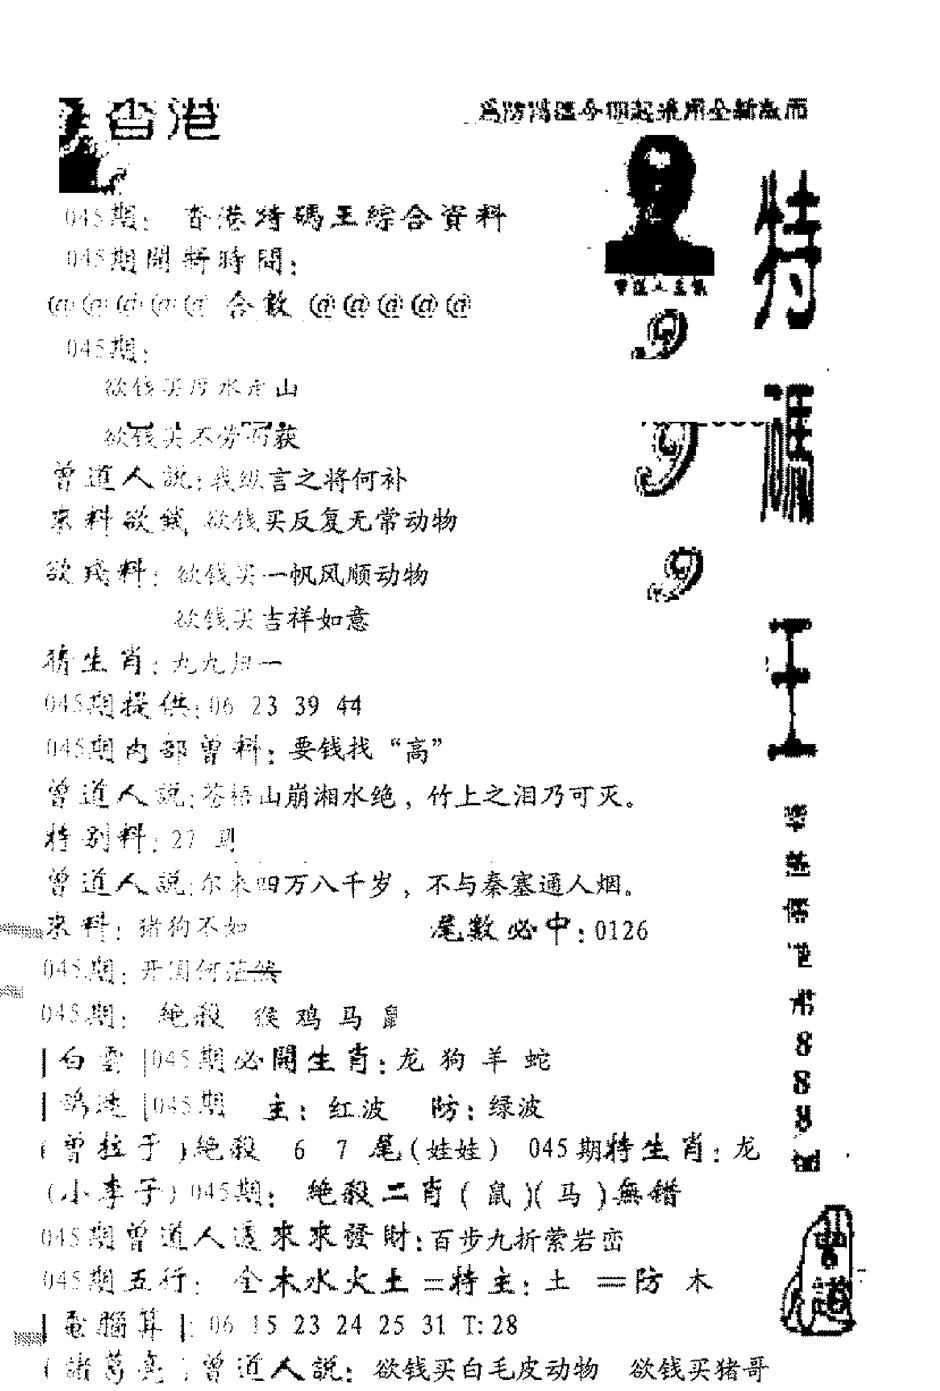 香港
爲防濫今期起采用全新版而
特碼王
999
曾道人
045期：香港特碼王綜合資料
045期開將時間：
@@@@@合數@@@@@
045期：
欲钱买 水 山
欲钱买不劳而获
曾道人説：我纵言之将何补
來料欲錢，欲钱买反复无常动物
欲錢料：欲钱买一帆风顺动物
欲钱买吉祥如意
猜生肖：九九归一
045期提供：06 23 39 44
045期内部曾料：要钱找“高”
曾道人説：苍梧山崩湘水绝，竹上之泪乃可灭。
特别料：27
曾道人説：尔来四万八千岁，不与秦塞通人烟。
來料：猪狗不如
尾數必中：0126
045期：开国何茫然
045期：絶殺 猴鸡马鼠
|白雲|045期必開生肖：龙狗羊蛇
045期 主：红波 防：绿波
絶殺 6 7 尾（娃娃） 045期特生肖：龙
(小李子)045期：絶殺二肖（鼠）（马）無錯
045期曾道人 來來發財：百步九折萦岩峦
045期五行：金木水火土=特主：土 =防 木
|電腦算|：06 15 23 24 25 31 T:28
(諸葛亮)曾道人説：欲钱买白毛皮动物 欲钱买猪哥
888
曾道